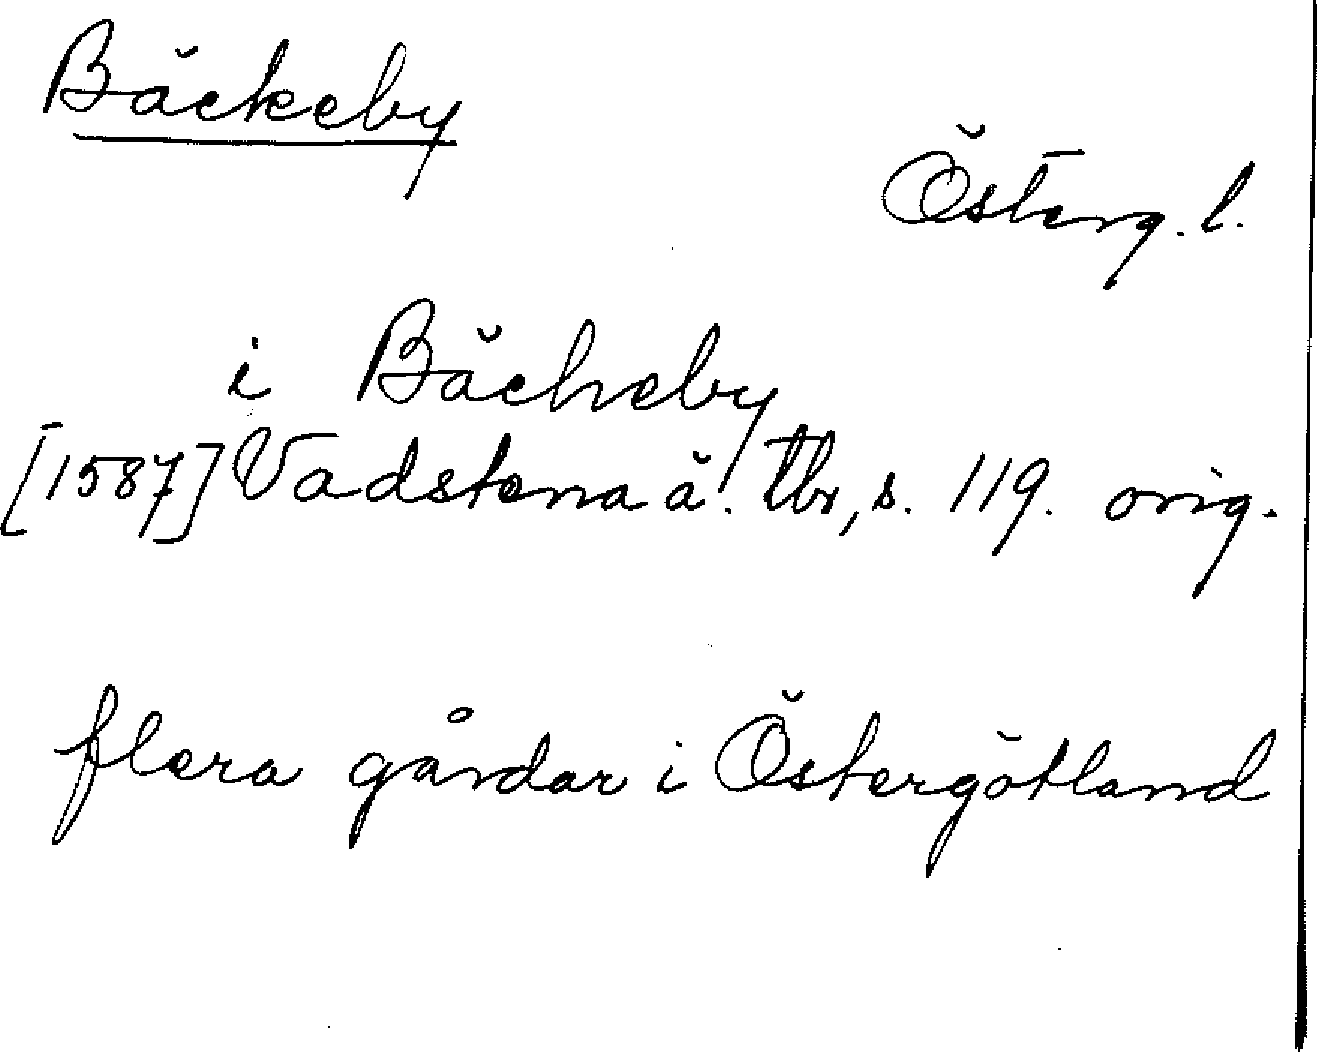 Bäckeby
Österg. l.
i Bächeby
[1587] Vadstena ä. tbr, s. 119. orig.
flera gårdar i Östergötland